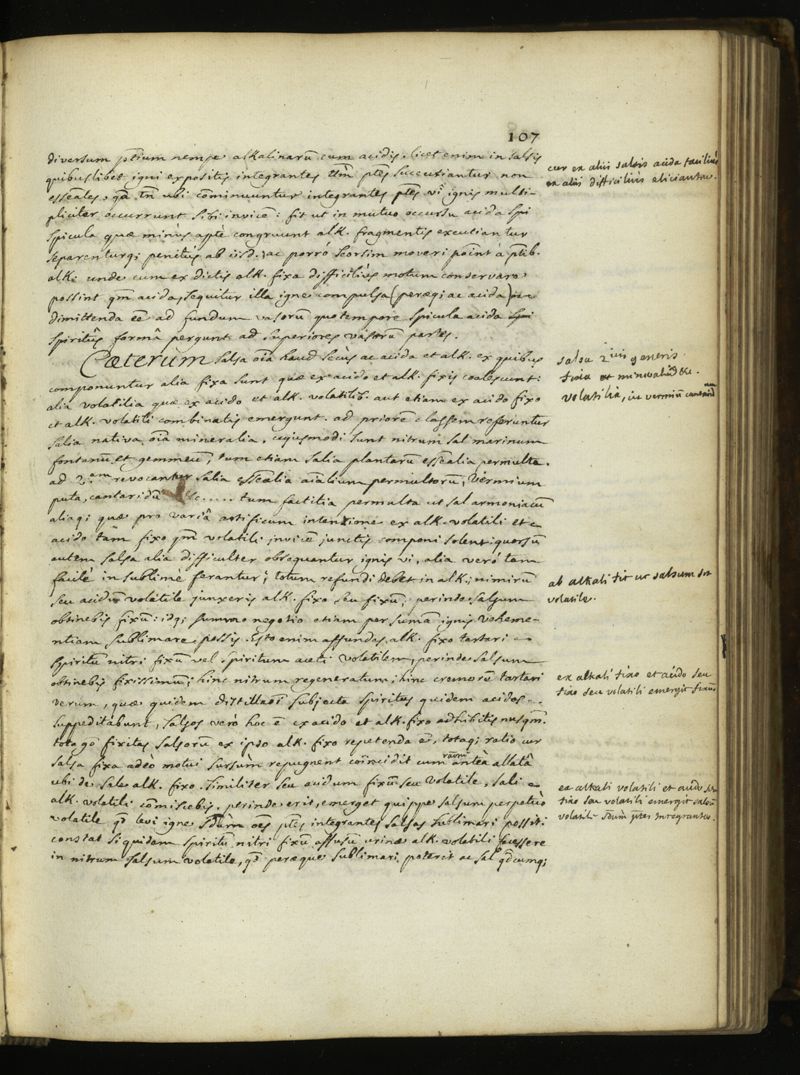 107
diversum ptium nempe alkalinarū cum acidis. licet enim in salsis
quibuslibet igni expositis integrantes ptes succutiantur non
essēales, qa tn ubi cōminuuntur integrantes ptes vi ignis multi-
pliciter occurrunt sibi invicē: fit ut in mutuo occursu acida
spicula quæ minùs aptè congruunt alk. fragmentis excutiantur
separenturq; penitus ab iisd. ac porró seorsim moveri poīnt à ptib.
alk: unde cum ex dictis alk. fixa difficiliùs motum conservare
possint qm acida, sequitur illa igne compulsa (peræqi ac acida)
dimittenda eē ad fundum vasorū quo tempore spicula acida
spiritûs formâ pergunt ad superiores vasorū partes.
cur ex aliis salsis acida faciliùs
ex aliis difficiliùs eliciantur.
Cæterum salsa oīa haud secùs ac acida et alk. ex quibus
componuntur alia fixa sunt quæ ex acido et alk. fixis coalescunt:
alia volatilia quæ ex acido et alk. volatilib. aut etiam ex acido fixo
et alk. volatili combinatis emergunt. ad priorē classem referuntur
salia nativa oīa mineralia, cujusmodi sunt nitrum sal marinum
fontanū et gemmeū, tum etiam salia plantarū essēalia permulta.
ad 2.am revocantur salia essēalia aīalium permultorū, vermium
puta, cantaridū &c..... tum factitia permulta ut sal armoniacū
aliaqi quæ pro variâ artificum intentione ex alk. volatili et
acido tàm fixo qm volatili invicē junctis componi solent quorsū
autem salsa alia difficulter obsequantur ignis vi, alia verò tam
facilè in sublime ferantur; totum refundi debet in alk; nimirū
seu acidū volatile junxeris alk. fixo seu fixū, perinde salsum
obtinebis fixū: idq; summo negotio etiam per sumā ignis vehemen-
ntiam sublimare possis. esto enim affundas alk. fixo tartari
spiritū nitri fixū vel spiritum aceti volatilem, perinde salsum
obtinebis fixissimū; hinc nitrum regeneratum; hinc cremorū tartari
verum, quæ quidem distillaōi subjecta spiritus quidem acidos
suppeditabunt, salsos verò hoc ē ex acido et alk. fixo adhibitis nusqm.
tota gō fixitas salsorū ex ipso alk. fixo repetenda ē, totaq; ratio cur
salsa fixa adeò motui sursum repugnent coincidit cum rāōni antea allatâ
ubi de sales alk. fixo. similiter seu acidum fixū seu volatile, sali
alk. volatili cōmiscebis. perinde erit, emerget quippe salsum perpetuò
volatile qd levi igne sdum oēs ptes integrantes salsas sublimari possit:
constat siquidem spiritū nitri fixū affusū urinæ alk. volatili facessere
in nitrum salsum volatile, qd peræque sublimari poterit ac sal qdcumq;
salsa 2.ius generis
fixa ut mineralia &c.
volatilia, ut vermiū cantaridum
ab alkali fit ut salsum sit
volatile.
ex alkali fixo et acido seu
fixo seu volatili emergit fixū
ex alkali volatili et acido seu
fixo seu volatili emergit salsū
volatile sdum ptes integrantes.